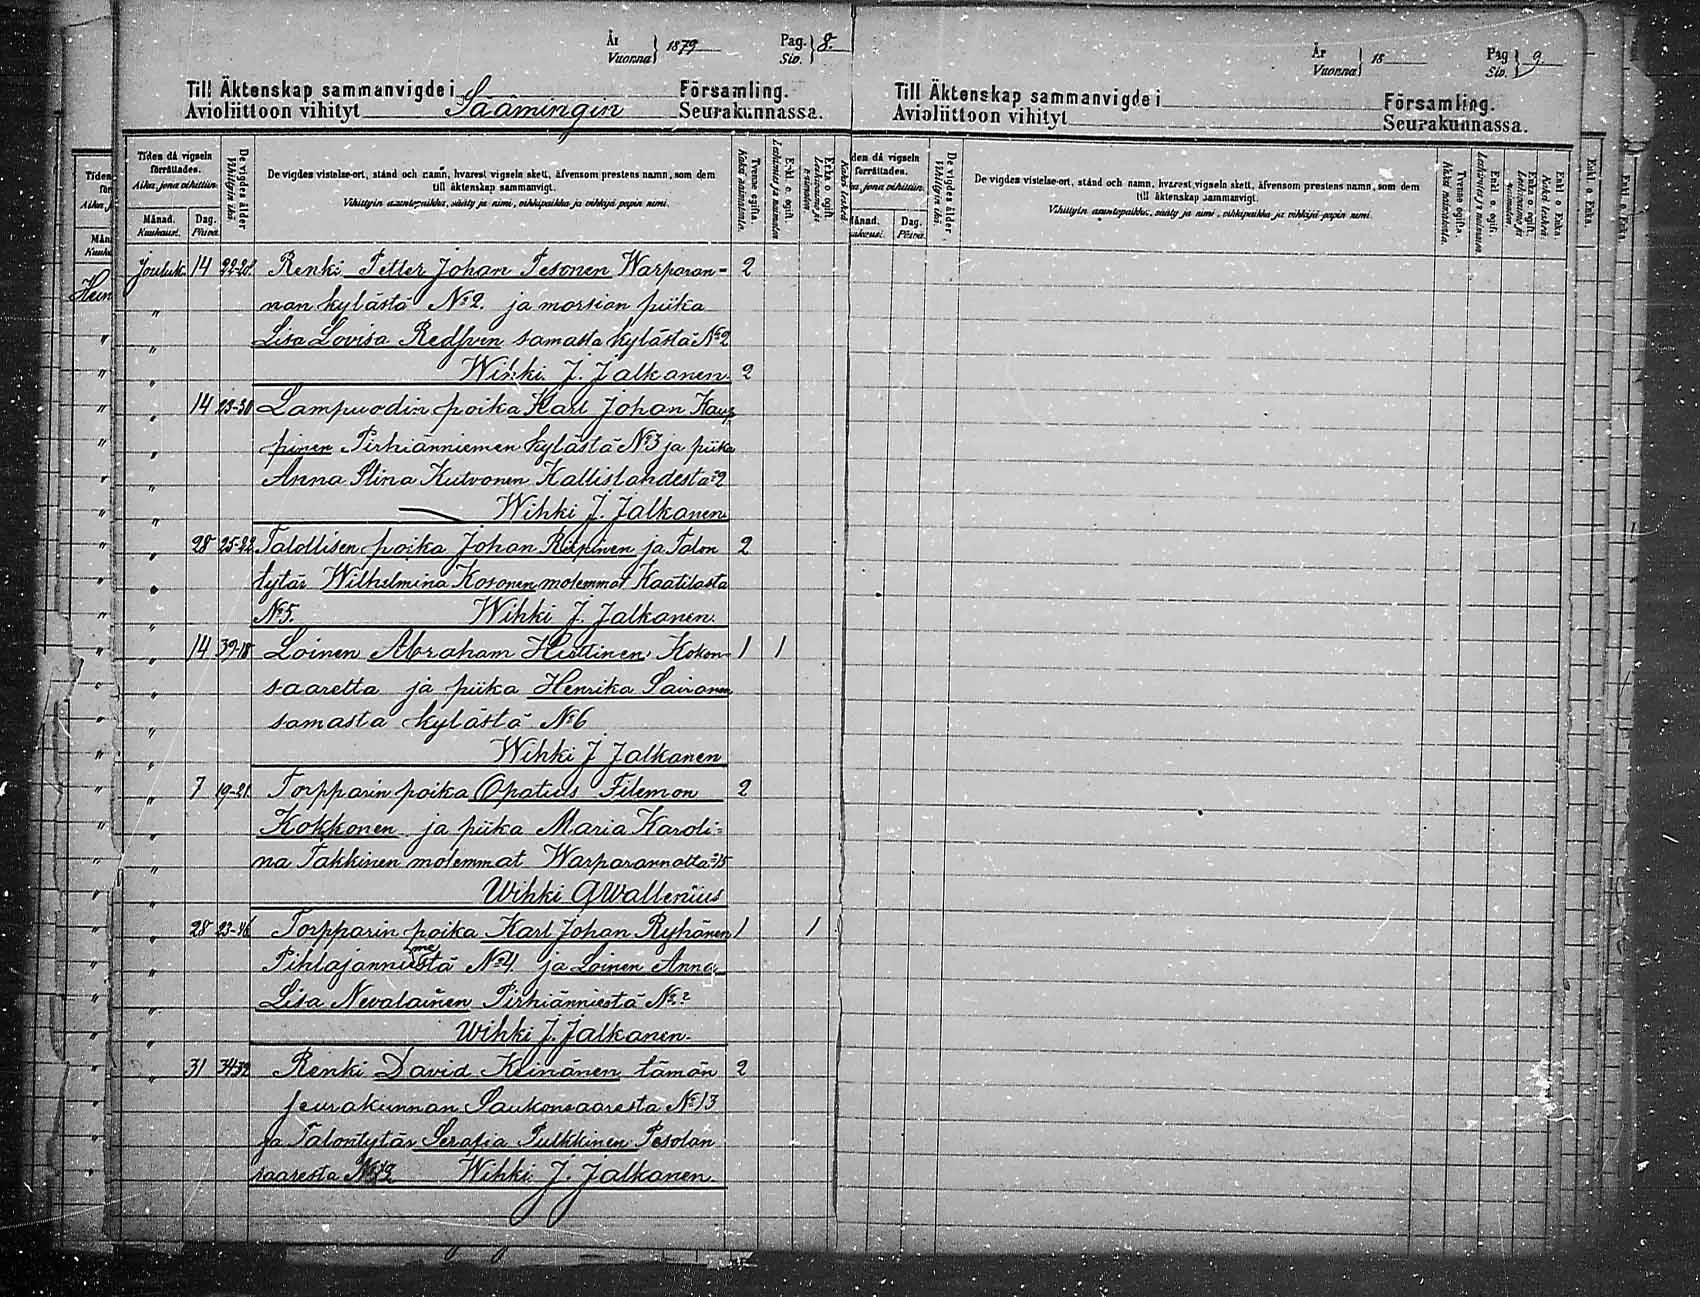 År
Vuonna 1879
Pag.
Siv. 8.
Till Äktenskap sammanvigde i Församling.
Avioliittoon vihityt Säämingin Seurakunnassa.
Tiden då vigseln förrättades.
Aika, jona vihittiin.
Månad.
Kuukausi.
Dag.
Päivä.
De vigdes ålder
Vihittyin ikä.
De vigdes vistelse-ort, stånd och namn, hvarest vigseln skett, äfvensom prestens namn, som dem
till äktenskap sammanvigt.
Vihittyin asuntopaikka, sääty ja nimi, vihkipaikka ja vihkijä-papin nimi.
Tvenne ogifta.
Kaksi naimatonta.
Enkl. o. ogift.
Leskimies ja naimaton
Enka o. ogift.
Leskivaimo ja naimaton
Jouluk. 14 22-28 Renki Petter Johan Pesonen Warparan= 2
" nan kylästä No 2. ja morsian piika
" Lisa Lovisa Redsven samasta kylästä No 2
" Wihki J. Jalkanen 2
" 14 23-30 Lampuodin poika Karl Johan Kaup
" pinen Pirhiänniemen kylästä No 3 ja piika
" Anna Stina Kutvonen Kallislahdesta 2
" Wihki J. Jalkanen
" 28 25-22 Talollisen poika Johan Reipinen ja Talon 2
" tytär Wilhelmina Kosonen molemmat Kaatilasta
" No 5. Wihki J. Jalkanen.
" 14 39-18 Loinen Abraham Hiettinen Kokon- 1 1
" saaretta ja piika Henrika Sairanen
" samasta kylästä No 6
" Wihki J Jalkanen
" 7 19-21 Torpparin poika Opatus Filemon 2
" Kokkonen ja piika Maria Karoli=
" na Takkinen molemmat Warparannalta 15
" Wihki G Wallenius
" 28 23-46 Torpparin poika Karl Johan Ryhänen 1 1
" Pihlajanniemestä No 4. ja Loinen Anna
" Lisa Nevalainen Pirhiänniestä No 2
" Wihki J. Jalkanen.
" 31 34-32 Renki David Keinänen tämän 2
" seurakunnan Saukonsaaresta No 13
" ja Talontytär Serafia Pulkkinen Pesolan
" saaresta No 12 Wihki J. Jalkanen.
År
Vuonna 18
Pag
Siv. 9.
Till Äktenskap sammanvigde i Församling.
Avioliittoon vihityt Seurakunnassa.
den då vigseln
förrättades.
a, jona vihittiin.
Månad.
Dag.
Päivä.
De vigdes ålder
Vihittyin ikä.
De vigdes vistelse-ort, stånd och namn, hvarest vigseln skett, äfvensom prestens namn, som dem
till äktenskap sammanvigt.
Vihittyin asuntopaikka, sääty ja nimi, vihkipaikka ja vihkijä-papin nimi.
Tvenne ogifta.
Kaksi naimatonta.
Enkl. o. ogift.
Leskimies ja naimaton
Enka o. ogift.
Leskivaimo ja naimaton
Enkl. o Enka.
Kaksi leskeä
Enkl. o Enka.